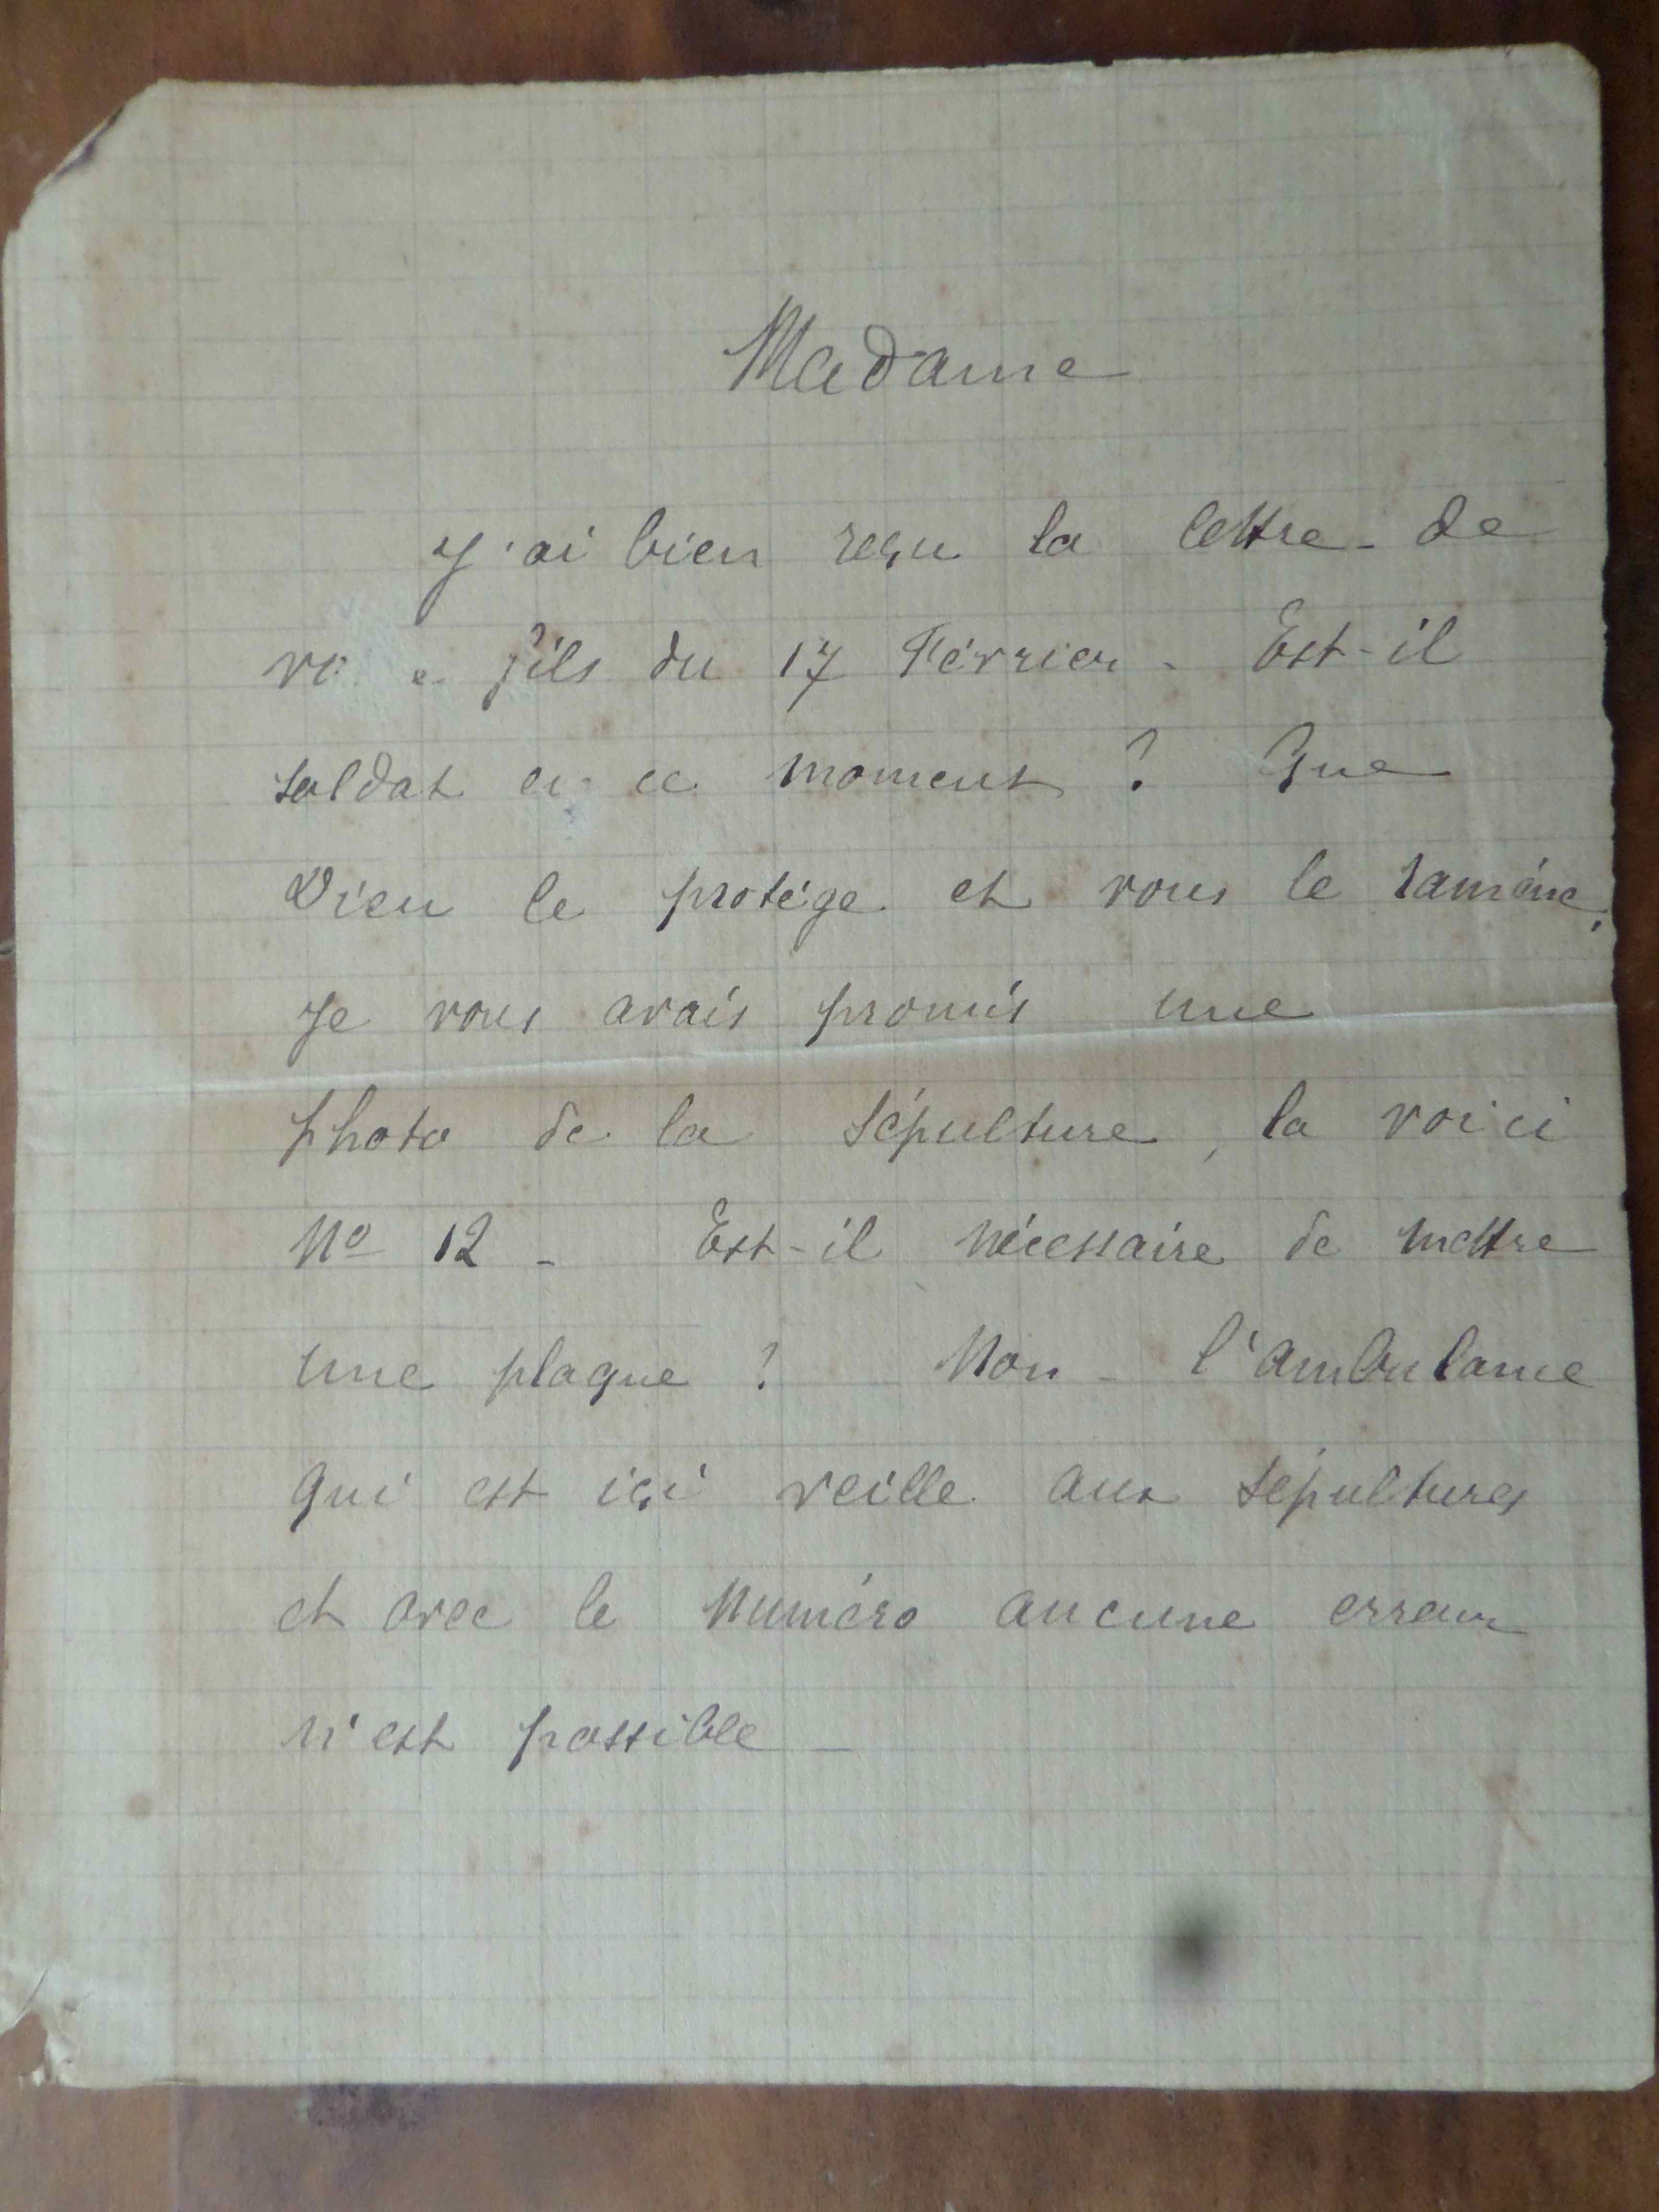 Madame
J'ai bien reçu la lettre de
fils du 17 Février - Est-il
soldat en ce moment ? Que
Dieu le protège et vous le ramène.
Je vous avais promis une
photo de la sépulture, la voici
No 12 - Est-il nécessaire de mettre
une plaque ? Non - l'ambulance
qui est içi veille aux sépultures
et avec le numéro aucune erreur
n'est possible -